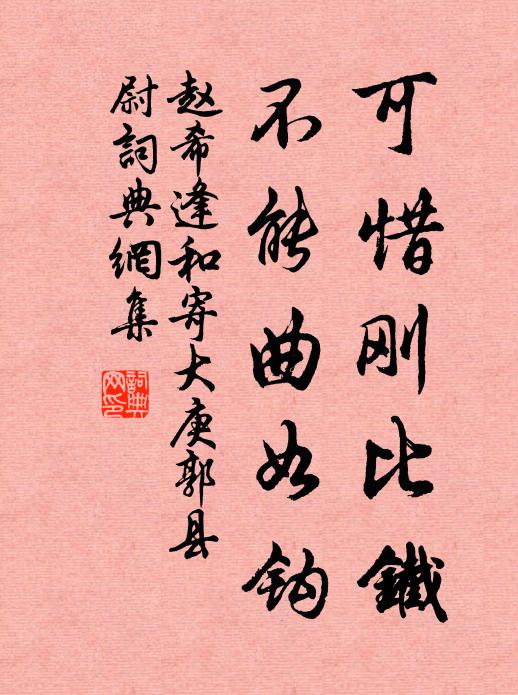 可惜刚比鐵
不能曲如钩
赵希逢和寄大庾郭县
尉詞典網集
詞典
网印